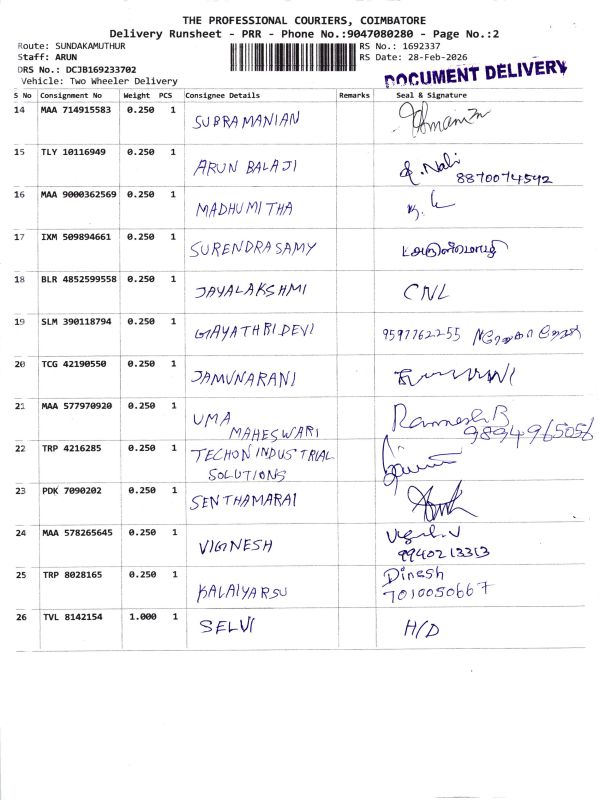 THE PROFESSIONAL COURIERS, COIMBATORE
Delivery Runsheet - PRR - Phone No.:9047080280 - Page No.:2
Route: SUNDAKAMUTHUR
RS No.: 1692337
Staff: ARUN
RS Date: 28-Feb-2026
DRS No.: DCJB169233702
Vehicle: Two Wheeler Delivery
DOCUMENT DELIVERY
S No Consignment No Weight PCS Consignee Details Remarks Seal & Signature
14 MAA 714915583 0.250 1 SUBRAMANIAN
15 TLY 10116949 0.250 1 ARUN BALAJI
8870074542
16 MAA 9000362569 0.250 1 MADHUMITHA
17 IXM 509894661 0.250 1 SURENDRASAMY
18 BLR 4852599558 0.250 1 JAYALAKSHMI CNL
19 SLM 390118794 0.250 1 GAYATHRIDEVI 9597762255
20 TCG 42190550 0.250 1 JAMUNARANI
21 MAA 577970920 0.250 1 UMA Ramesh B
MAHESWARI 9894965056
22 TRP 4216285 0.250 1 TECHON INDUSTRIAL
SOLUTIONS
23 PDK 7090202 0.250 1 SENTHAMARAI
24 MAA 578265645 0.250 1 VIGNESH
9940213313
25 TRP 8028165 0.250 1 KALAIYARSU Dinesh
7010050667
26 TVL 8142154 1.000 1 SELVI H/D